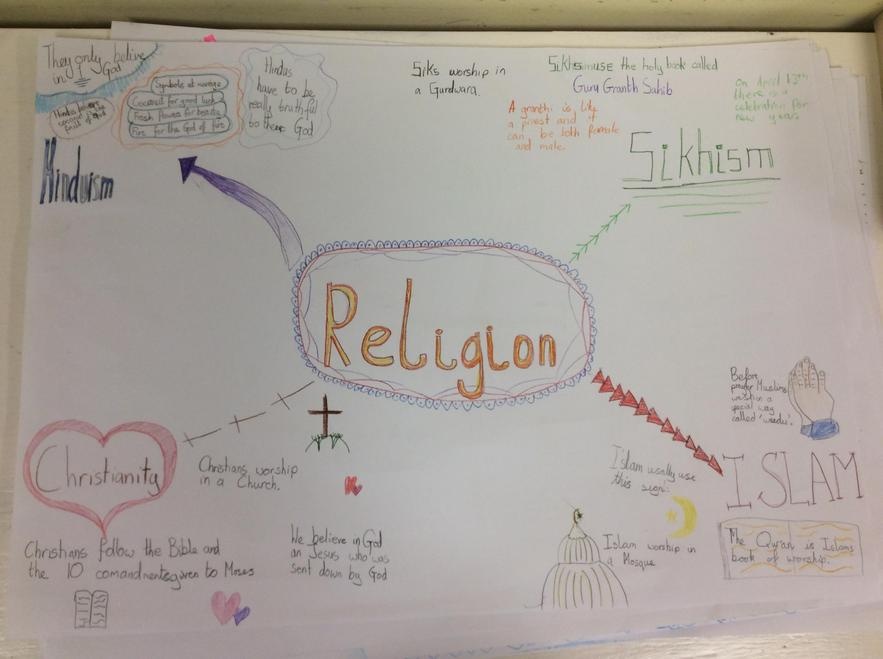 They only believe
in 1 God
Symbols at marriage
Coconut for good luck
Fresh flowers for beauty
Fire for the God of fire
Hindus
have to be
really truthful
to there God
Hinduism
Siks worship in
a Gurdwara.
Sikhismuse the holy book called
Guru Granth Sahib
A granthi is like
a priest and it
can be both female
and male.
On April 13th
there is a
celebration for
new year.
Sikhism
Religion
Christianity
Christians worship
in a Church.
Christians follow the Bible and
the 10 comandmentsgiven to Moses
We believe in God
an Jesus who was
sent down by God
Before
prayer Muslims
wash in a
special way
called 'wudu'.
Islam usally use
this sign:
ISLAM
Islam worship in
a Mosque
The Quran is Islams
book of worship.